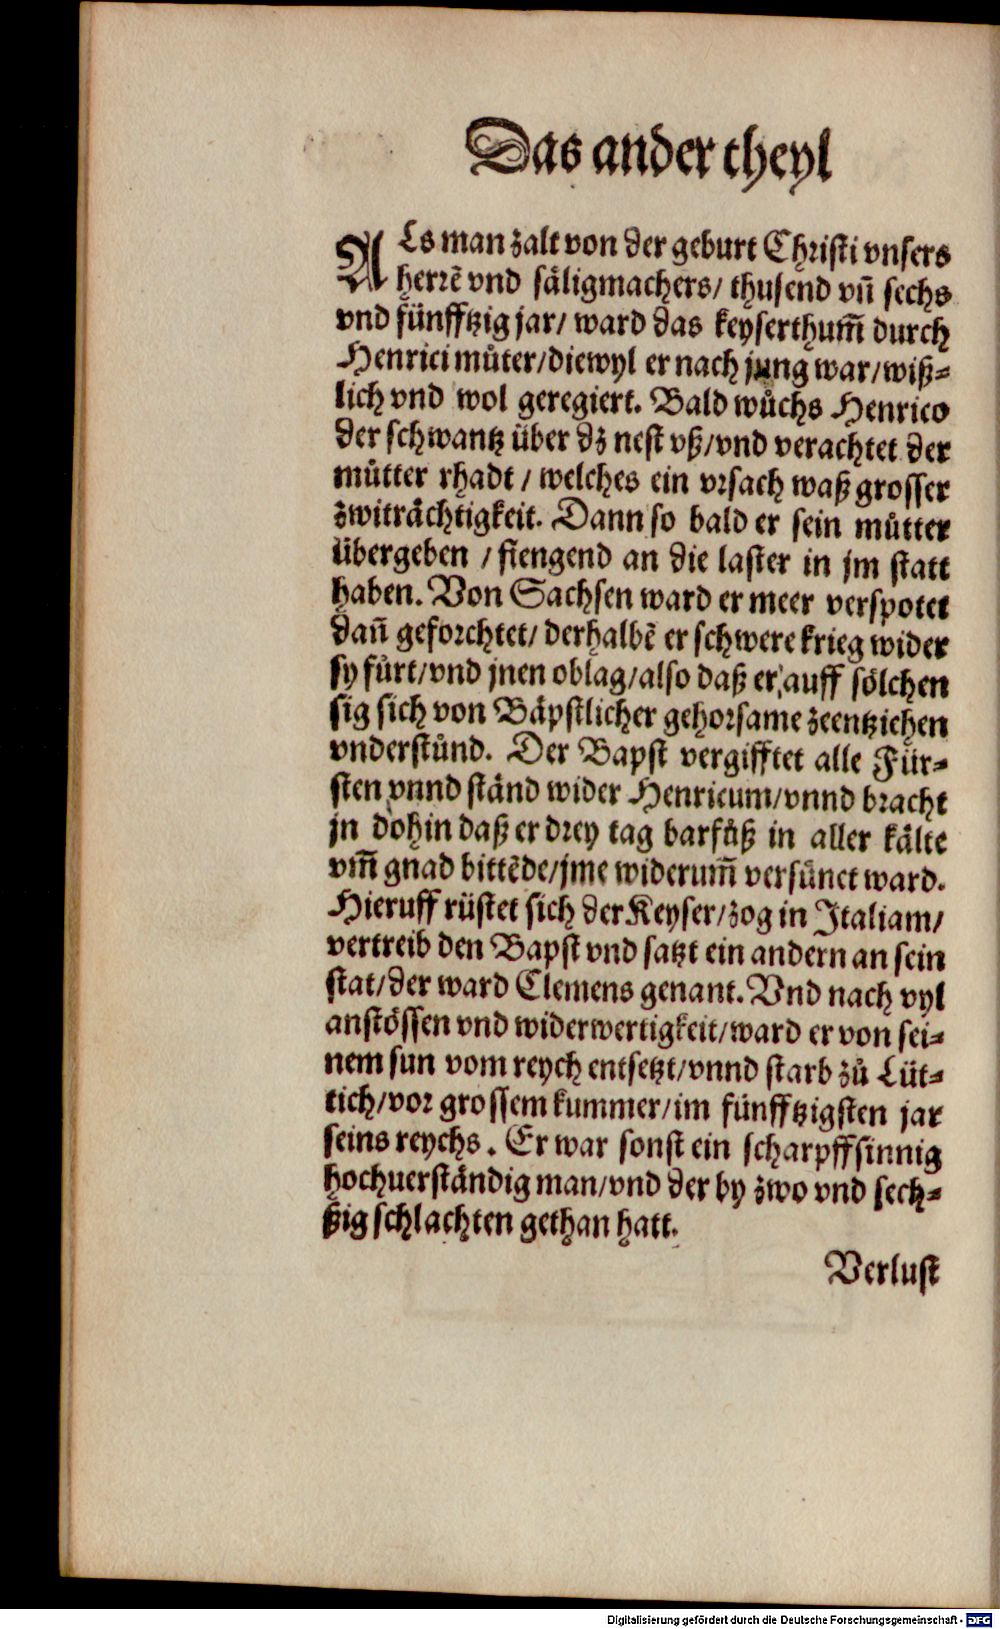 Das ander theyl
ALs man zalt von der geburt Christi vnsers
herrē vnd säligmachers/ thusend vñ sechs
vnd fünfftzig jar/ ward das keyserthum̃ durch
Henrici můter/diewyl er nach jung war/wiß⸗
lich vnd wol geregiert. Bald wůchs Henrico
der schwantz über dz nest vß/vnd verachtet der
můtter rhadt / welches ein vrsach waß grosser
zwiträchtigkeit. Dann so bald er sein můtter
übergeben / fiengend an die laster in jm statt
haben. Von Sachsen ward er meer verspotet
dañ geforchtet/ derhalbē er schwere krieg wider
sy fůrt/vnd jnen oblag/also daß er auff sölchen
sig sich von Bäpstlicher gehorsame zeentziehen
vnderstůnd. Der Bapst vergifftet alle Für⸗
sten vnnd ständ wider Henricum/vnnd bracht
jn dohin daß er drey tag barfůß in aller kälte
vm̃ gnad bittēde/jme widerum̃ versünet ward.
Hieruff rüstet sich der Keyser/zog in Italiam/
vertreib den Bapst vnd satzt ein andern an sein
stat/der ward Clemens genant. Vnd nach vyl
anstössen vnd widerwertigkeit/ward er von sei⸗
nem sun vom reych entsetzt/vnnd starb zů Lüt⸗
tich/vor grossem kummer/im fünfftzigsten jar
seins reychs. Er war sonst ein scharpffsinnig
hochuerständig man/vnd der by zwo vnd sech⸗
ßig schlachten gethan hatt.
Verlust
Digitalisierung gefördert durch die Deutsche Forschungsgemeinschaft - DFG